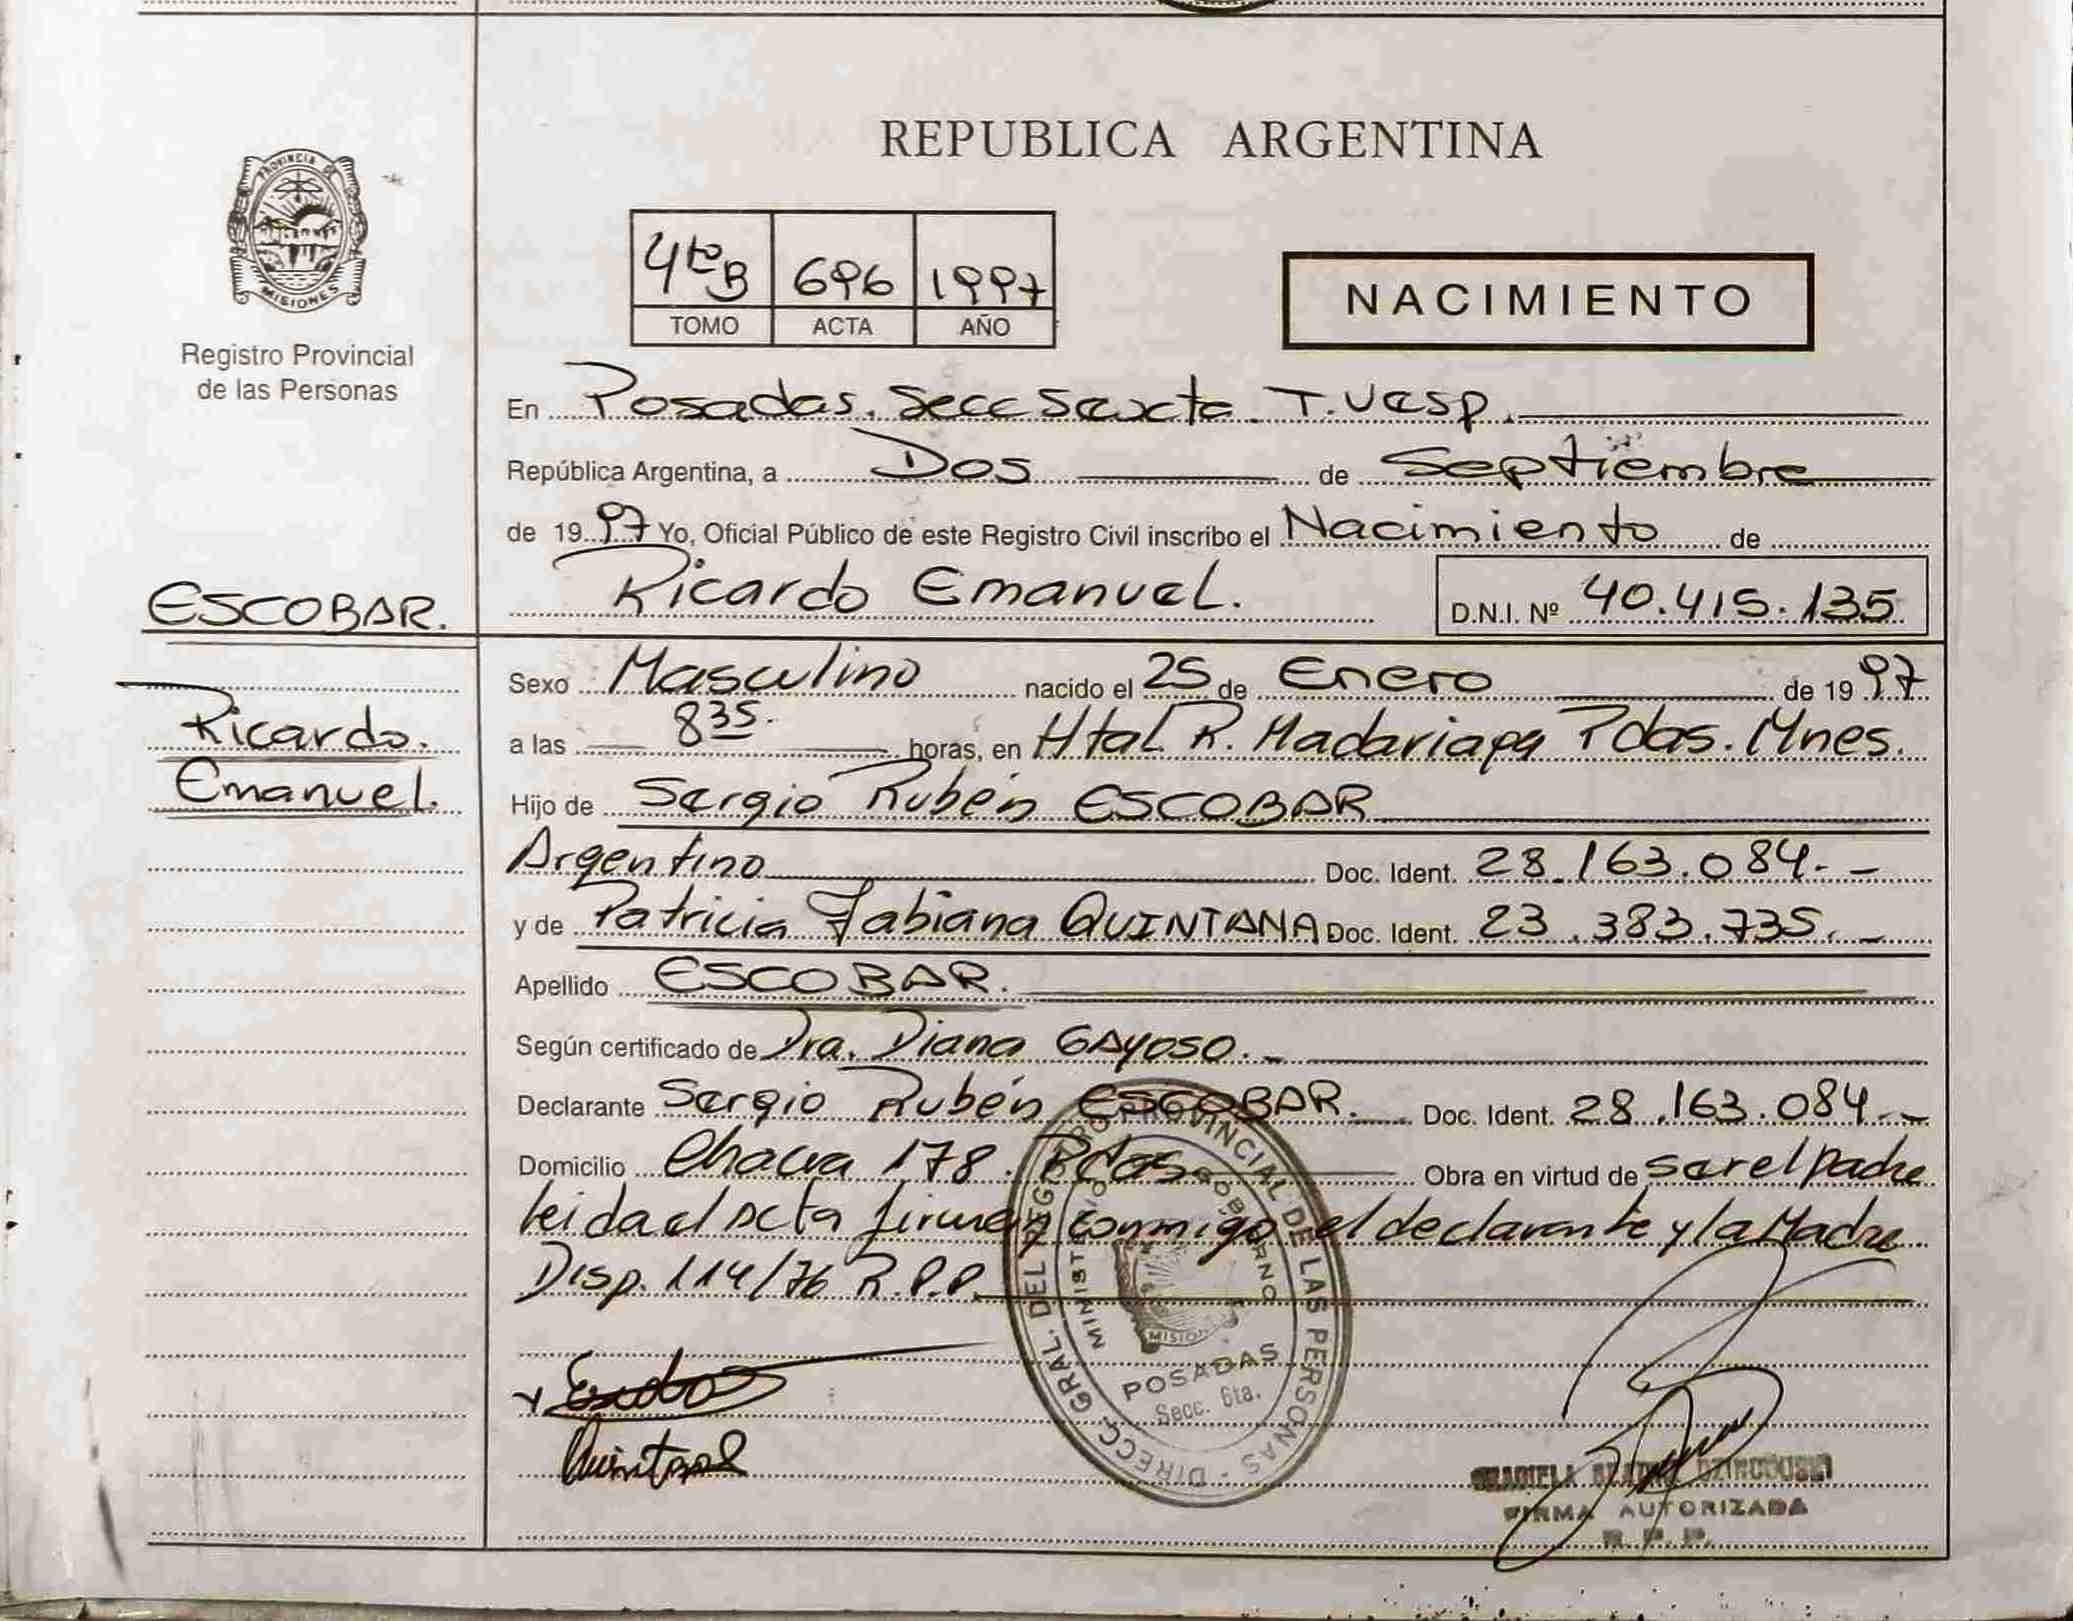 REPUBLICA ARGENTINA
PROVINCIA DE
MISIONES
Registro Provincial
de las Personas
4to B 696 1997
TOMO ACTA AÑO
NACIMIENTO
En Posadas. Secc Sexcta. T. Vesp.
República Argentina, a Dos de Septiembre
de 1997 Yo, Oficial Público de este Registro Civil inscribo el Nacimiento de
Ricardo Emanuel.
D.N.I. Nº 40.415.135
ESCOBAR.
Ricardo.
Emanuel.
Sexo Masculino nacido el 25 de Enero de 1997
a las 8 35. horas, en Htal R. Madariaga Pdas. Mnes.
Hijo de Sergio Rubén ESCOBAR
Argentino Doc. Ident. 28.163.084.-
y de Patricia Fabiana QUINTANA Doc. Ident. 23.383.735.-
Apellido ESCOBAR.
Según certificado de Dra. Diana GAYOSO.-
Declarante Sergio Rubén ESCOBAR. Doc. Ident. 28.163.084.-
Domicilio Chacra 178. Pdas. Obra en virtud de ser el padre
leida el acta firman conmigo el declarante y la Madre
Disp. 114/76 R.P.P.
DIRECC. GRAL. DEL REGISTRO PROVINCIAL DE LAS PERSONAS
MINISTERIO GOBIERNO
MISIONES
POSADAS
Secc. 6ta.
FIRMA AUTORIZADA
R. P. P.